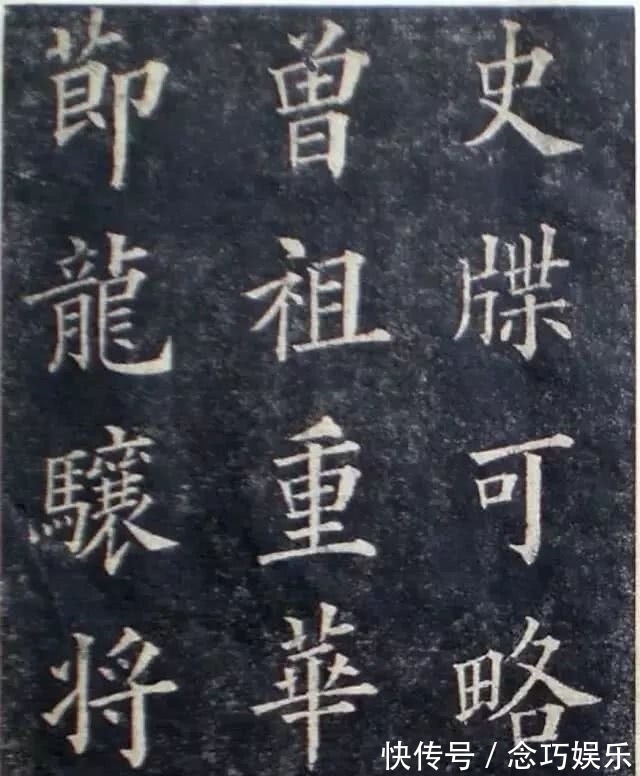 史牒可略
曾祖重華
節龍驤將
快传号 / 念巧娱乐